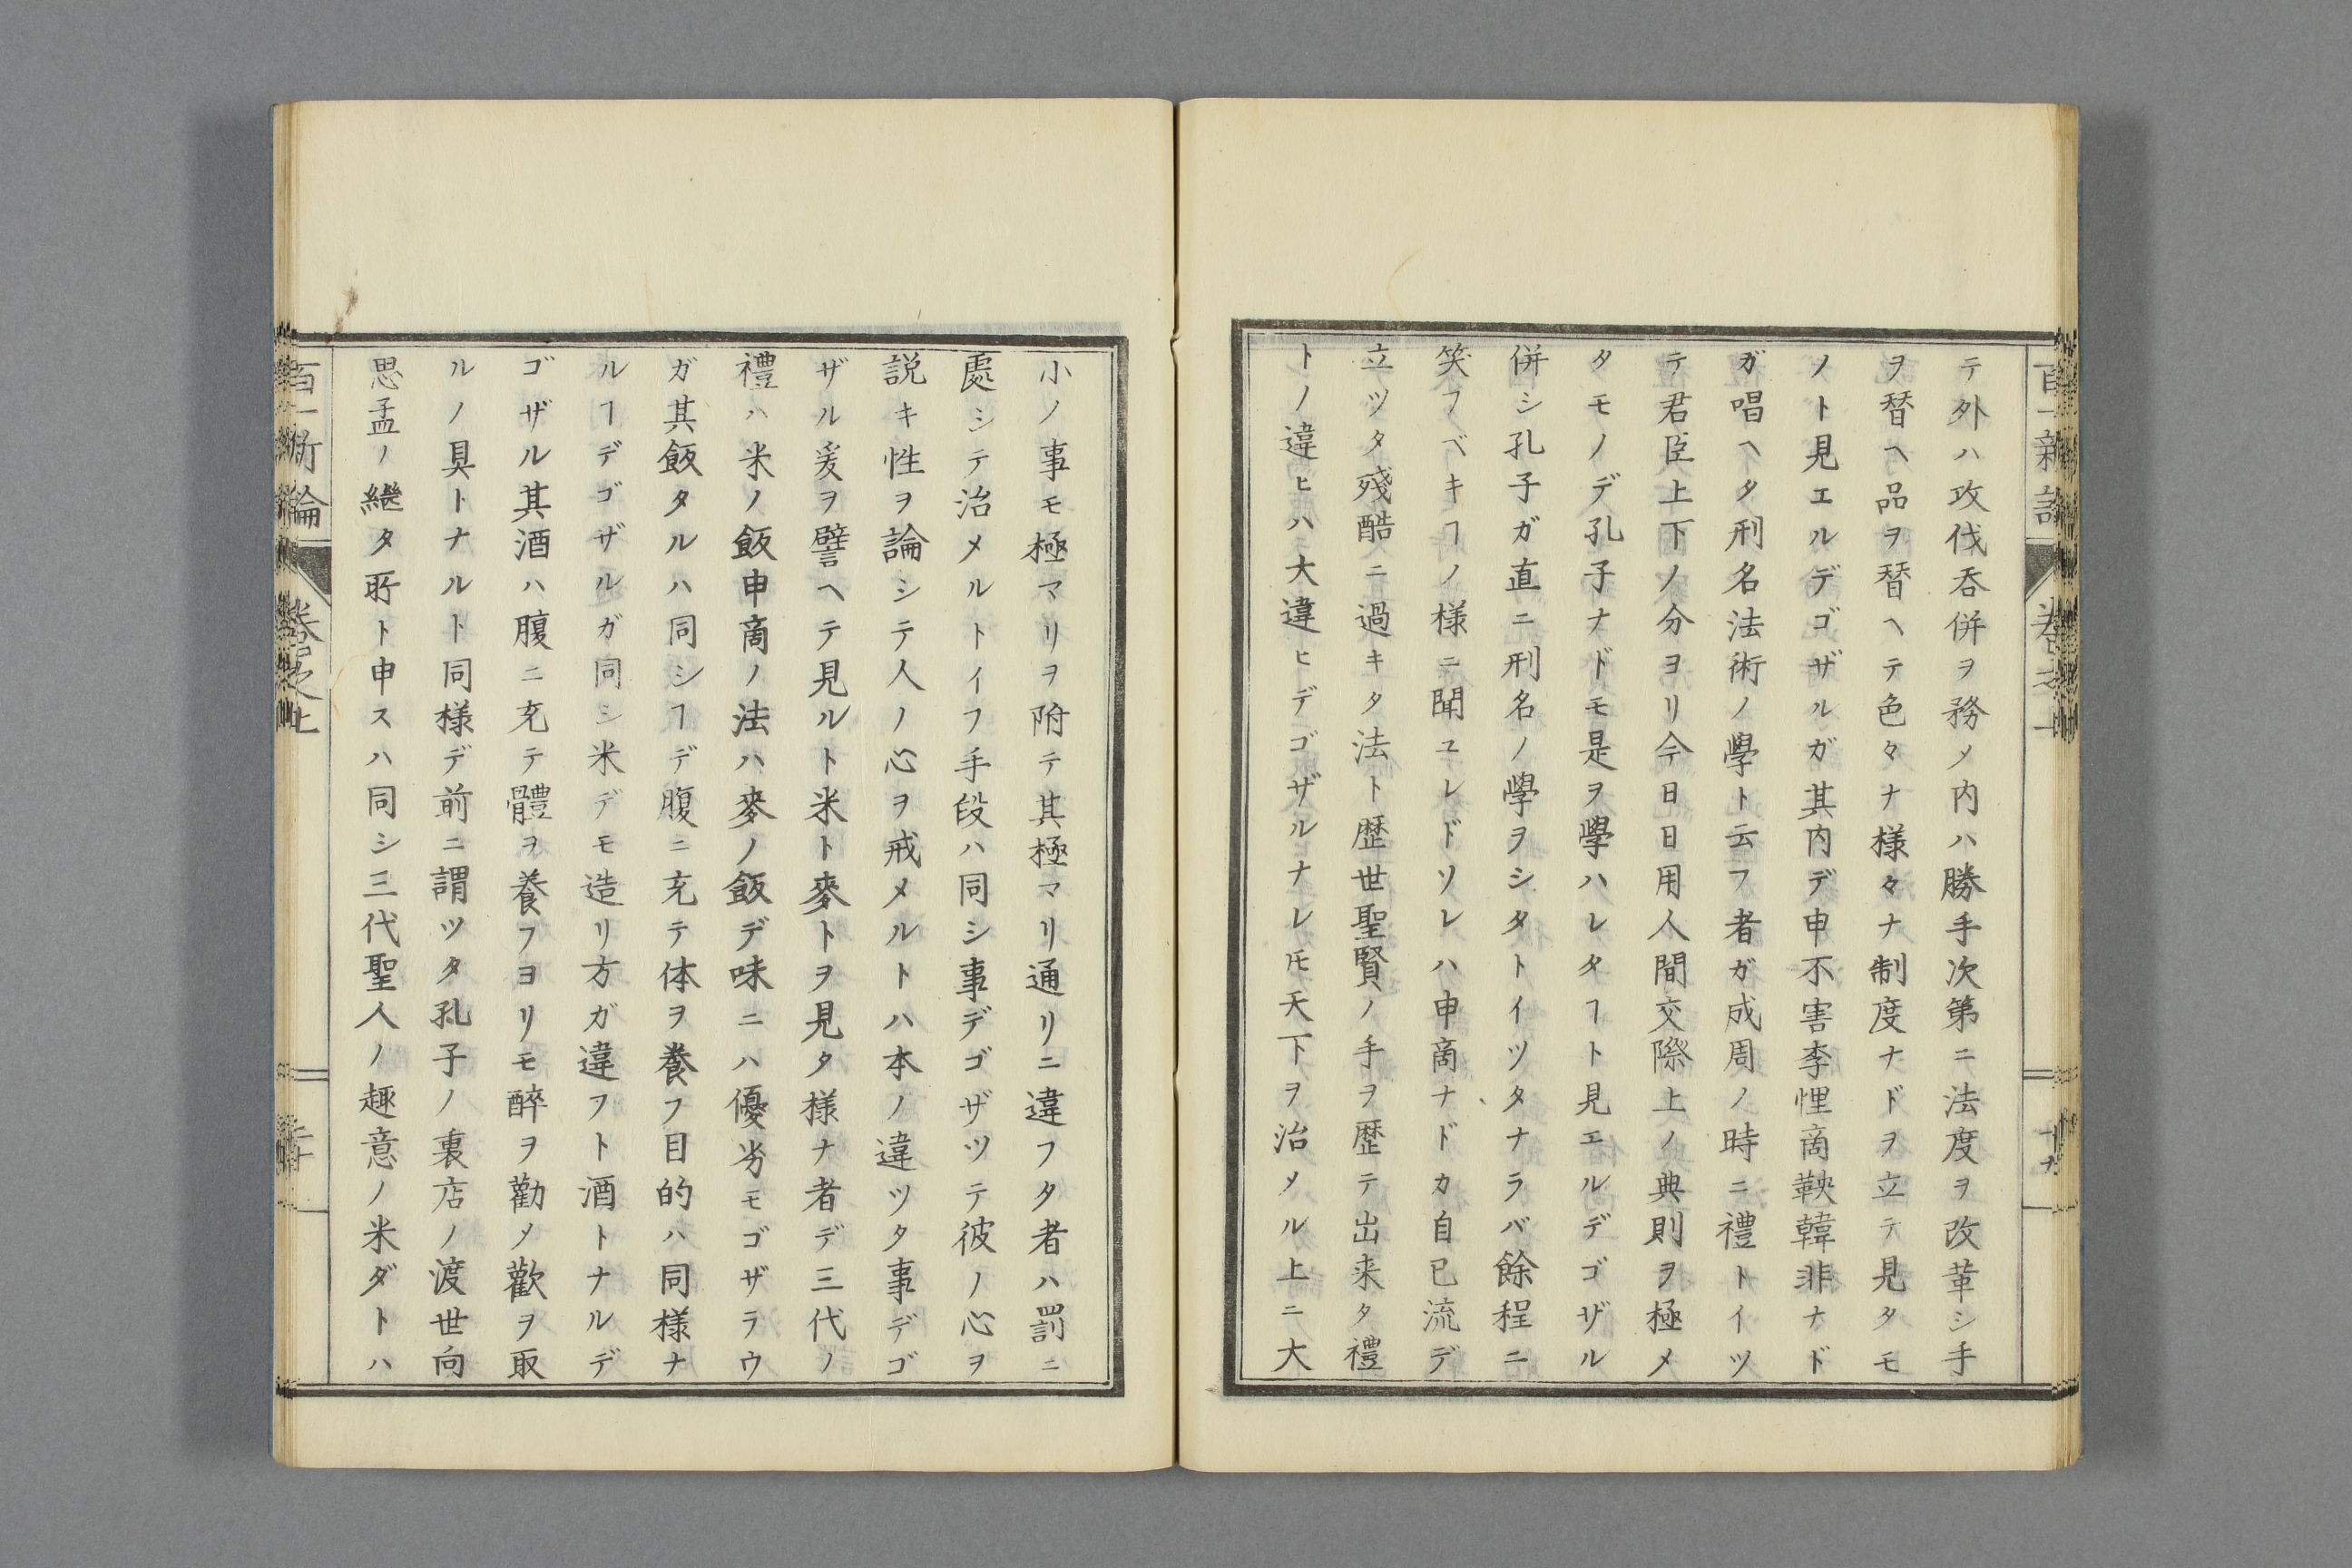 テ外ハ攻伐呑併ヲ務メ内ハ勝手次第ニ法度ヲ改革シ手
ヲ替ヘ品ヲ替ヘテ色々ナ様々ナ制度ナドヲ立テ見タモ
ノト見エルデゴザルガ其内デ申不害李悝商鞅韓非ナド
ガ唱ヘタ刑名法術ノ學ト云フ者ガ成周ノ時ニ禮トイツ
テ君臣上下ノ分ヨリ今日日用人間交際上ノ典則ヲ極メ
タモノデ孔子ナドモ是ヲ學ハレタヿト見エルデゴザル
併シ孔子ガ直ニ刑名ノ學ヲシタトイツタナラバ餘程ニ
笑フベキヿノ様ニ聞ユレドソレハ申商ナドカ自己流デ
立ツタ殘酷ニ過キタ法ト歴世聖賢ノ手ヲ歴テ出来タ禮
トノ違ヒハ大違ヒデゴザルナレ𪜈天下ヲ治メル上ニ大
小ノ事モ極マリヲ附テ其極マリ通リニ違フタ者ハ罰ニ
處シテ治メルトイフ手段ハ同シ事デゴザツテ彼ノ心ヲ
説キ性ヲ論シテ人ノ心ヲ戒メルトハ本ノ違ツタ事デゴ
ザル爰ヲ譬ヘテ見ルト米ト麥トヲ見タ様ナ者デ三代ノ
禮ハ米ノ飯申商ノ法ハ麥ノ飯デ味ニハ優劣モゴザラウ
ガ其飯タルハ同シヿデ腹ニ充テ体ヲ養フ目的ハ同様ナ
ルヿデゴザルガ同シ米デモ造リ方ガ違フト酒トナルデ
ゴザル其酒ハ腹ニ充テ體ヲ養フヨリモ醉ヲ勸メ歡ヲ取
ルノ具トナルト同様デ前ニ謂ツタ孔子ノ裏店ノ渡世向
思孟ノ継タ所ト申スハ同シ三代聖人ノ趣意ノ米ダトハ
百一新論
卷之上